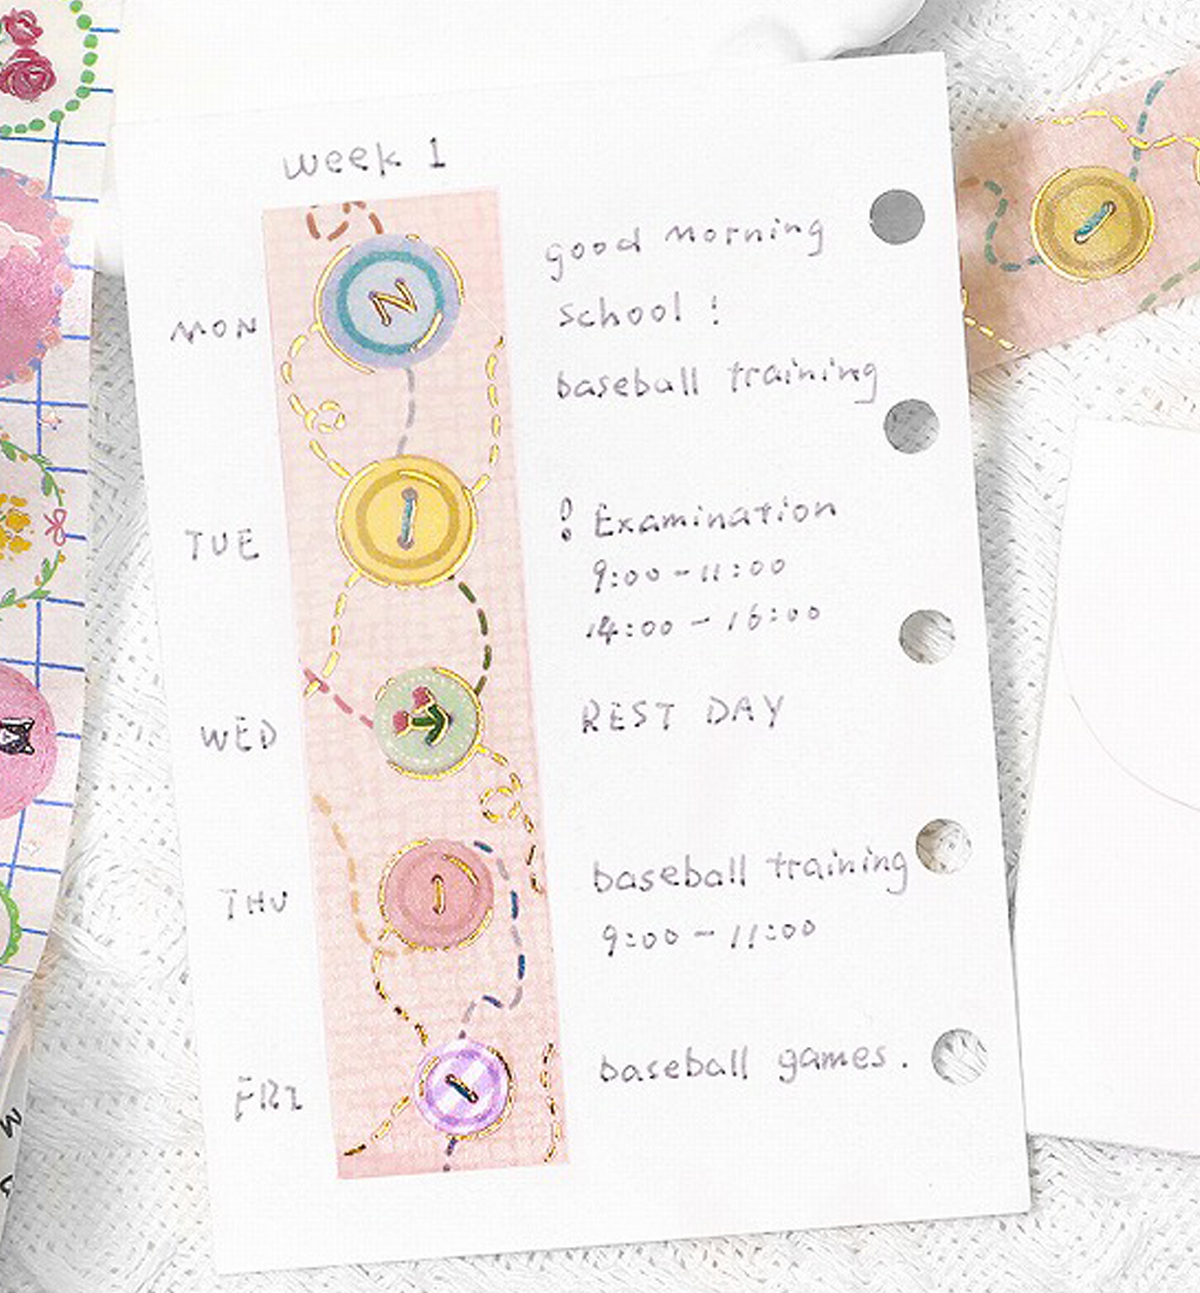 week 1
MON
good morning
school !
baseball training
TUE
! Examination
9:00 - 11:00
14:00 - 16:00
WED
REST DAY
THU
baseball training
9:00 - 11:00
FRI
baseball games.